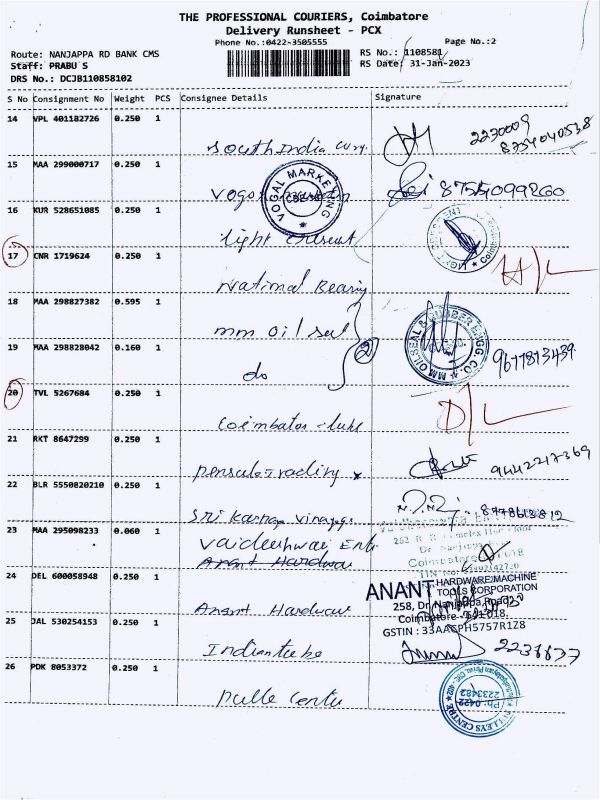 THE PROFESSIONAL COURIERS, Coimbatore
Delivery Runsheet - PCX
Phone No.:0422-3505555 Page No.:2
Route: NANJAPPA RD BANK CMS RS No.: 1108581
Staff: PRABU S RS Date: 31-Jan-2023
DRS No.: DCJB110858102
S No Consignment No Weight PCS Consignee Details Signature
14 VPL 401182726 0.250 1
South India 2230009
8754040538
15 MAA 299000717 0.250 1
VOGAL MARKETING 8754099260
16 KUR 528651085 0.250 1
light
17 CNR 1719624 0.250 1
National Bearing
18 MAA 298827382 0.595 1
mm oil seal 2
MM OILSEAL & RUBBER ENGG. CO.
19 MAA 298828042 0.160 1
do
20 TVL 5267684 0.250 1
D/L
21 RKT 8647299 0.250 1
9442217369
22 BLR 5550820210 0.250 1
Sri
23 MAA 295098233 0.060 1
Vaideeshwari Ent
Anant Hardwar
24 DEL 600058948 0.250 1
Anant Hardware
ANANT HARDWARE/MACHINE
TOOLS CORPORATION
258, Dr. Nanjappa Road,
Coimbatore - 641 018.
25 JAL 530254153 0.250 1
Indian tube
26 PDK 8053372 0.250 1
Pulley Centre
PULLEYS CENTRE
Ph: 0422
2233482